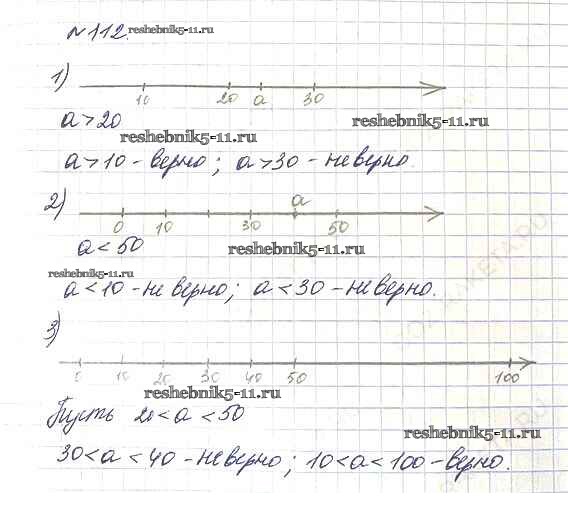 №112. reshebnik5-11.ru
1)
10 20 a 30
a > 20 reshebnik5-11.ru
reshebnik5-11.ru
a > 10 - верно; a > 30 - неверно.
2) a
0 10 30 50
a < 50 reshebnik5-11.ru
reshebnik5-11.ru
a < 10 - неверно; a < 30 - неверно.
3)
0 10 20 30 40 50 100
reshebnik5-11.ru
Пусть 20 < a < 50
reshebnik5-11.ru
30 < a < 40 - неверно; 10 < a < 100 - верно.